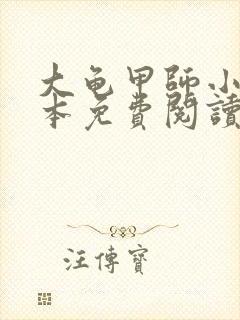 大龟甲師小
本免費閱讀
汪傳寶